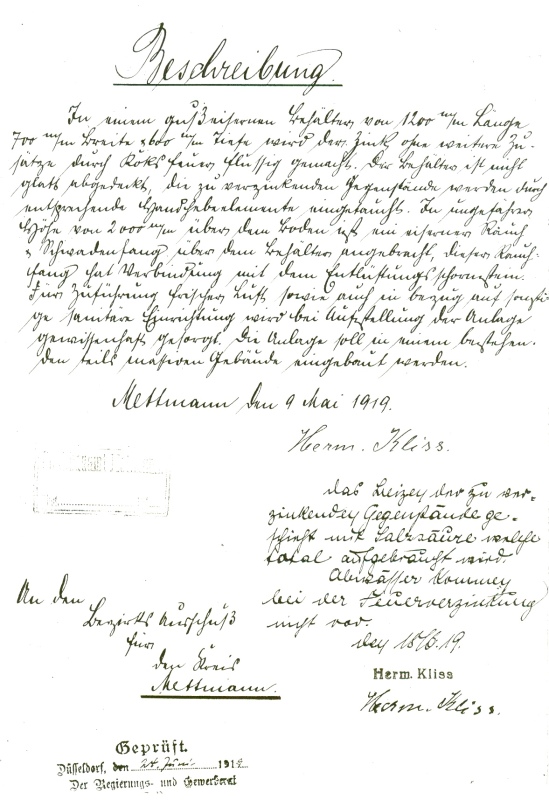 Beschreibung.
In einem gußeisernen Behälter von 1200 m/m Länge
700 m/m Breite & 600 m/m Tiefe wird der Zink ohne weitere Zu-
sätze durch Koks feuer flüssig gemacht. Der Behälter ist nicht
glatt abgedeckt, die zu verzinkenden Gegenstände werden durch
entsprechende Handhebelemente eingetaucht. In ungefährer
Höhe von 2000 m/m über dem Boden ist ein eiserner Rauch
& Schwadenfang über dem Behälter angebracht, dieser Rauch-
fang hat Verbindung mit dem Entlüftungsschornstein.
Für Zuführung frischer Luft, sowie auch in bezug auf sonsti
ge sanitäre Einrichtung wird bei Aufstellung der Anlage
gewissenhaft gesorgt. Die Anlage soll in einem bestehen-
den teils massiven Gebäude eingebaut werden.
Mettmann den 9 Mai 1919.
Herm. Kliss.
das Beizen der zu ver-
zinkenden Gegenstände ge-
schieht mit Salzsäure welche
total aufgebraucht wird.
Abwässer kommen
bei der Feuerverzinkung
nicht vor.
den 18/6.19.
Herm. Kliss
Herm. Kliss.
An den
Bezirks Ausschuß
für
den Kreis
Mettmann.
Geprüft.
Düsseldorf, den 24. Juni 1919
Der Regierungs- und Gewerberat